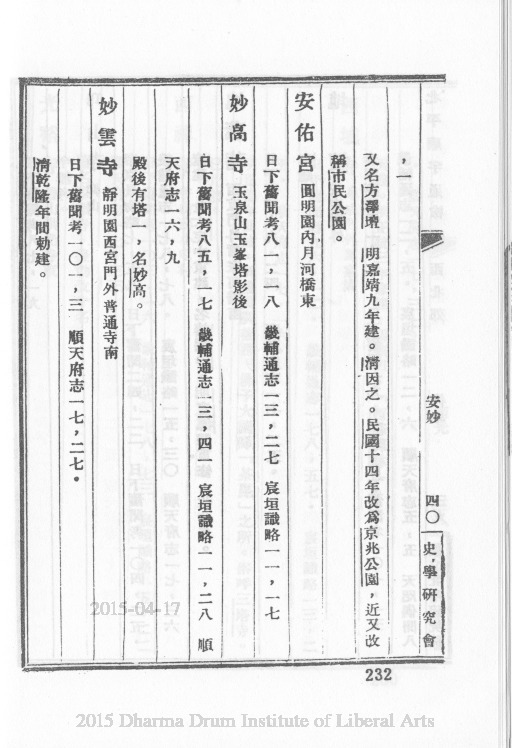 安妙
四〇
史學研究會
，一
又名方澤壇　明嘉靖九年建。清因之。民國十四年改爲京兆公園，近又改
稱市民公園。
安佑宮　圓明園內月河橋東
日下舊聞考八一，一八　畿輔通志一三，二七　宸垣識略一一，一七
妙高寺　玉泉山玉峯塔影後
日下舊聞考八五，一七　畿輔通志一三，四一　宸垣識略一一，二八　順
天府志一六，九
殿後有塔一，名妙高。
妙雲寺　靜明園西宮門外普通寺南
日下舊聞考一〇一，三　順天府志一七，二七。
清乾隆年間勅建。
232
2015-04-17
2015 Dharma Drum Institute of Liberal Arts